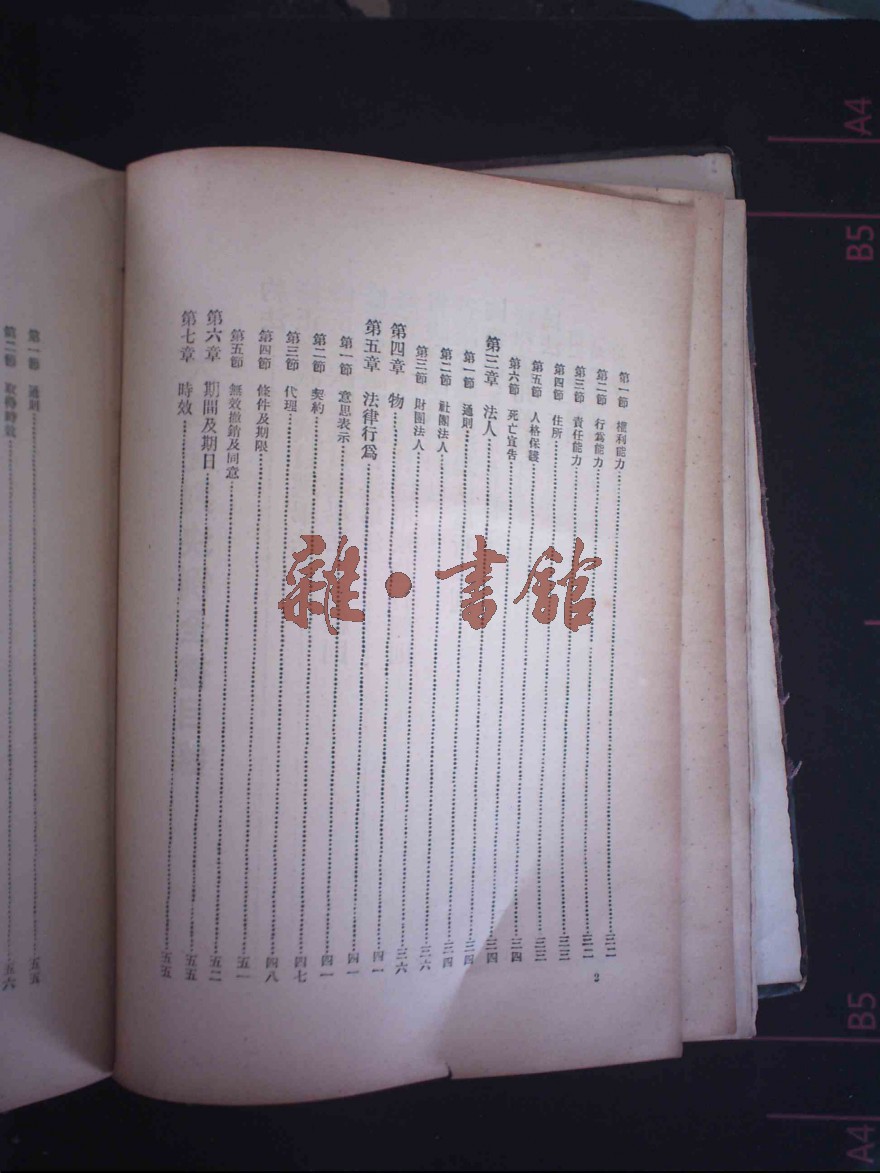 第一節 權利能力
第二節 行爲能力
第三節 責任能力
第四節 住所
第五節 人格保護……二四
第六節 死亡宣告……二四
第三章 法人……二四
第一節 通則……二四
第二節 社團法人……二六
第三節 財團法人……三六
第四章 物……四一
第五章 法律行爲……四一
第一節 意思表示……四一
第二節 契約……四七
第三節 代理……四八
第四節 條件及期限……五一
第五節 無效撤銷及同意……五二
第六章 期間及期日……五五
第七章 時效……五五
2
第一節 通則……五五
第二節 取得時效……五六
雜·書館
A4
B5
B5
A4